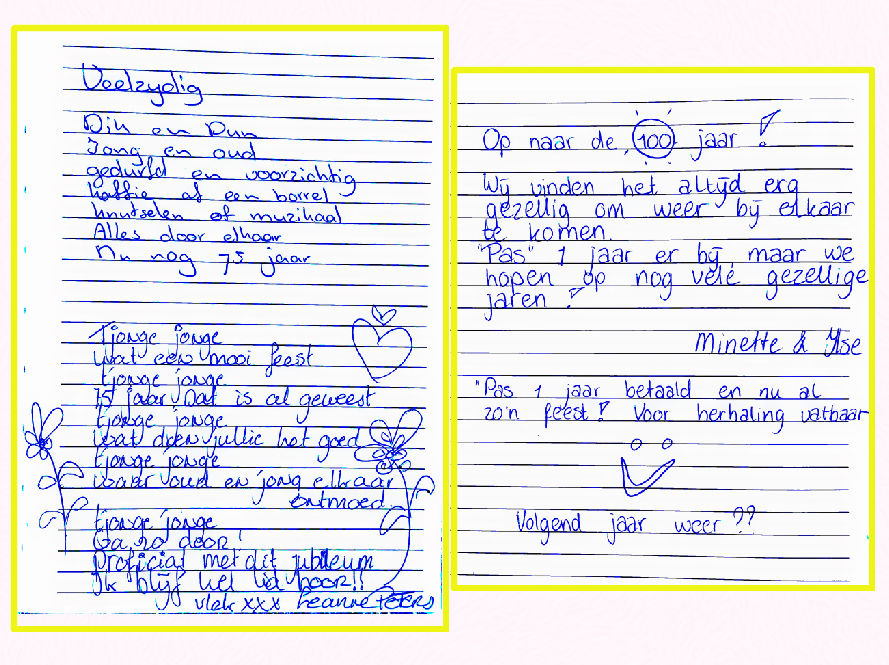 Veelzydig
Dik en Dun
Jong en oud
gedurfd en voorzichtig
koffie of een borrel
knutselen of muzikaal
Alles door elkaar
Nu nog 75 jaar
Tjonge jonge
wat een mooi feest
tjonge jonge
75 jaar Dat is al geweest
tjonge jonge
wat doen jullie het goed
tjonge jonge
waar oud en jong elkaar
ontmoed
tjonge jonge
Ga zo door!
proficiat met dit jubileum
Ik blijf lid hoor!!
xxx
Op naar de 100 jaar !
Wij vinden het altijd erg
gezellig om weer bij elkaar
te komen.
"Pas" 1 jaar er bij, maar we
hopen op nog vele gezellige
jaren !
Minette & Ilse
"Pas 1 jaar betaald en nu al
zo'n feest! Voor herhaling vatbaar
Volgend jaar weer ??